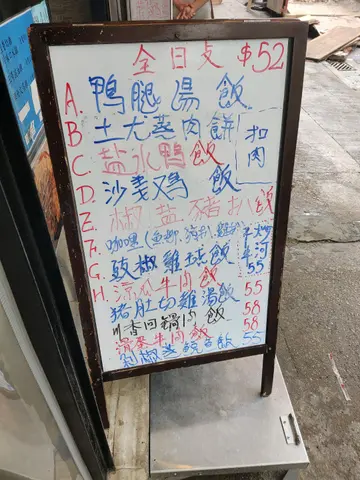 全日支 $52
A. 鴨腿湯飯
B. 土尤蒸肉餅
扣肉
C. 盐水鴨飯
D. 沙姜鸡飯
E. 椒盐豬扒飯
F. 咖喱(魚柳,豬扒,雞翼)
干炒牛河 55
G. 豉椒雞球飯
H. 凉瓜牛肉飯 55
猪肚切雞湯飯 58
川香回鍋肉飯 58
滑蛋牛肉飯 55
剁椒蒸